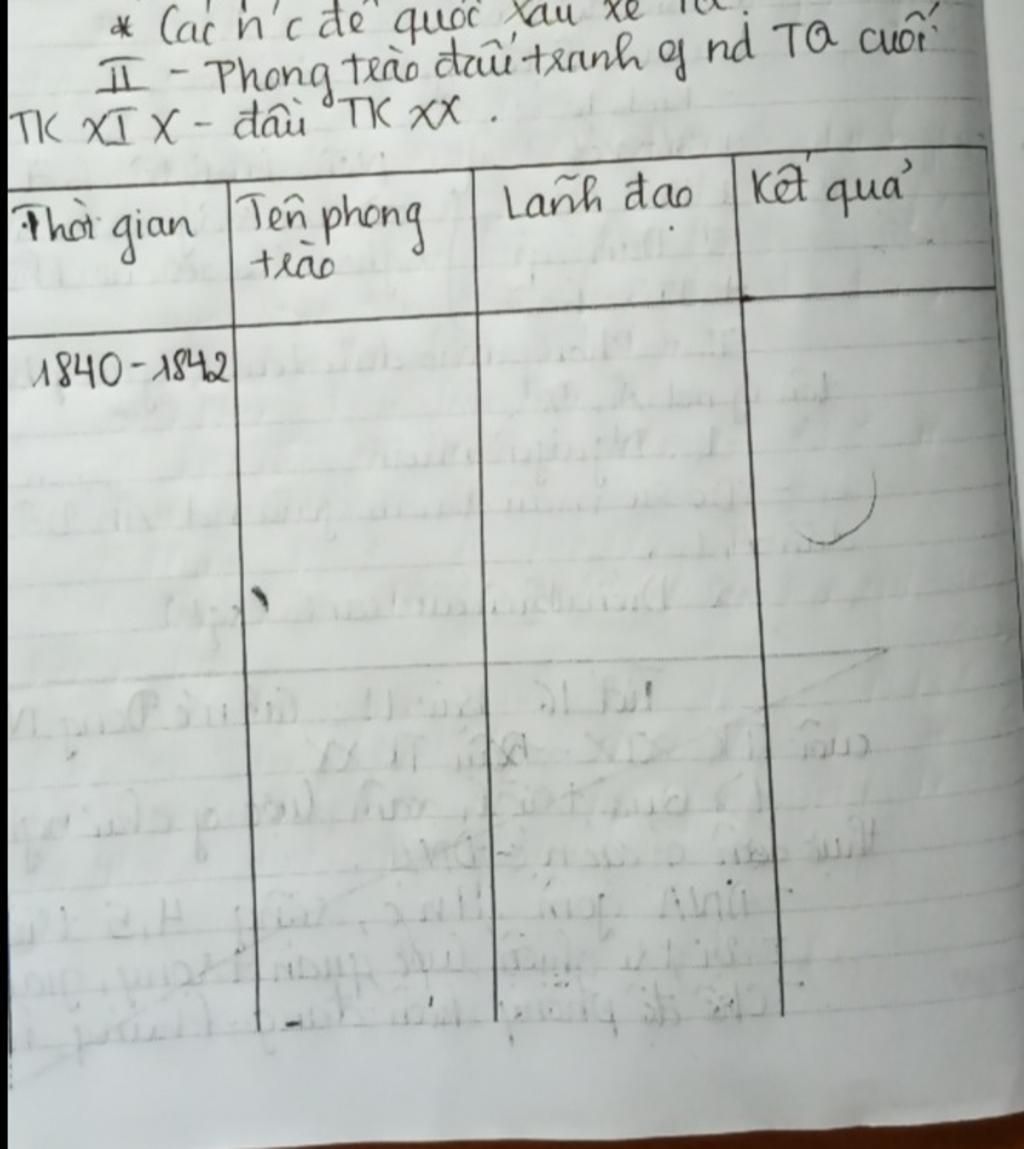 * Các n'c đế quốc xâu xé
II - Phong trào đấu tranh of nd TQ cuối
TK XIX - đầu TK XX .
Thời gian
Tên phong
trào
Lãnh đạo
Kết quả
1840 - 1842